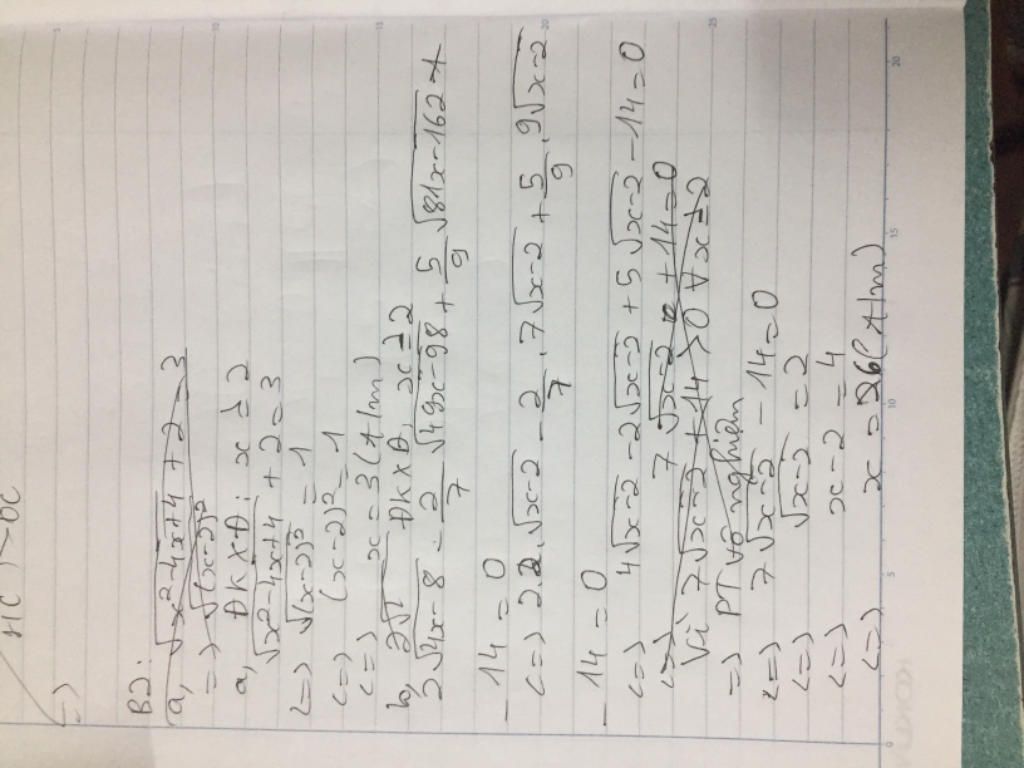 B2:
a, √x²-4x+4 + 2 = 3
=> √(x-2)²
a, ĐKXĐ: x ≥ 2
√x²-4x+4 + 2 = 3
<=> √(x-2)² = 1
<=> (x-2)² = 1
<=> x = 3 (tm)
b, 2√ ĐKXĐ, x ≥ 2
2√4x-8 - 2/7 √49x-98 + 5/9 √81x-162 +
- 14 = 0
<=> 2.2.√x-2 - 2/7 . 7√x-2 + 5/9 . 9√x-2
- 14 = 0
<=> 4√x-2 - 2√x-2 + 5√x-2 - 14 = 0
<=> 7√x-2 + 14 = 0
Vì 7√x-2 + 14 > 0 ∀ x ≥ 2
=> PT vô nghiệm
<=> 7√x-2 - 14 = 0
<=> √x-2 = 2
<=> x-2 = 4
<=> x = 6 (tm)
5
10
15
20
5
10
15
20
25